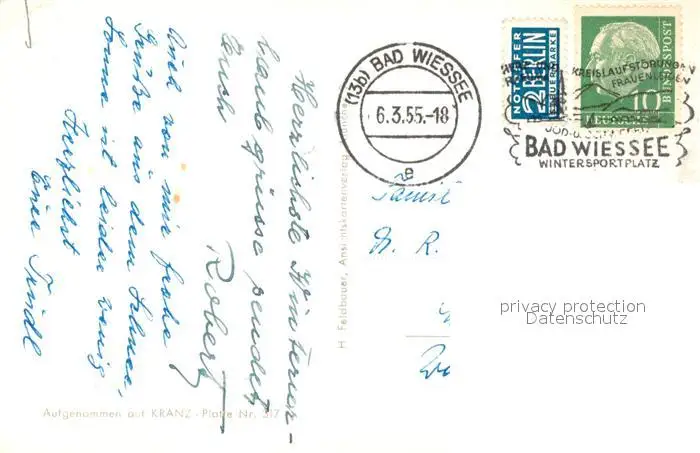 Herrlichste Winterur-
laubgrüsse sendet
Euch
Robert
Auch von mir frohe
Grüße aus dem Schnee,
Sonne ist leider wenig
Herzlichst
Eure Trudl
Aufgenommen auf KRANZ-Platte Nr. 317
H. Feldbauer, Ansichtskartenverlag
(13b) BAD WIESSEE
6.3.55.-18
a
NOTOPFER
2 BERLIN
STEUERMARKE
10
BUNDESPOST
KREISLAUFSTÖRUNGEN
FRAUENLEIDEN
BAD WIESSEE
WINTERSPORTPLATZ
N. R.
privacy protection
Datenschutz